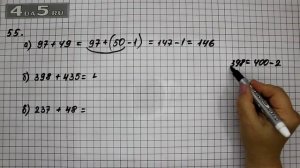 4DA5.RU
55.
а) 97+49 = 97+(50-1) = 147-1 = 146
398 = 400-2
б) 398+435=
б) 237+48=